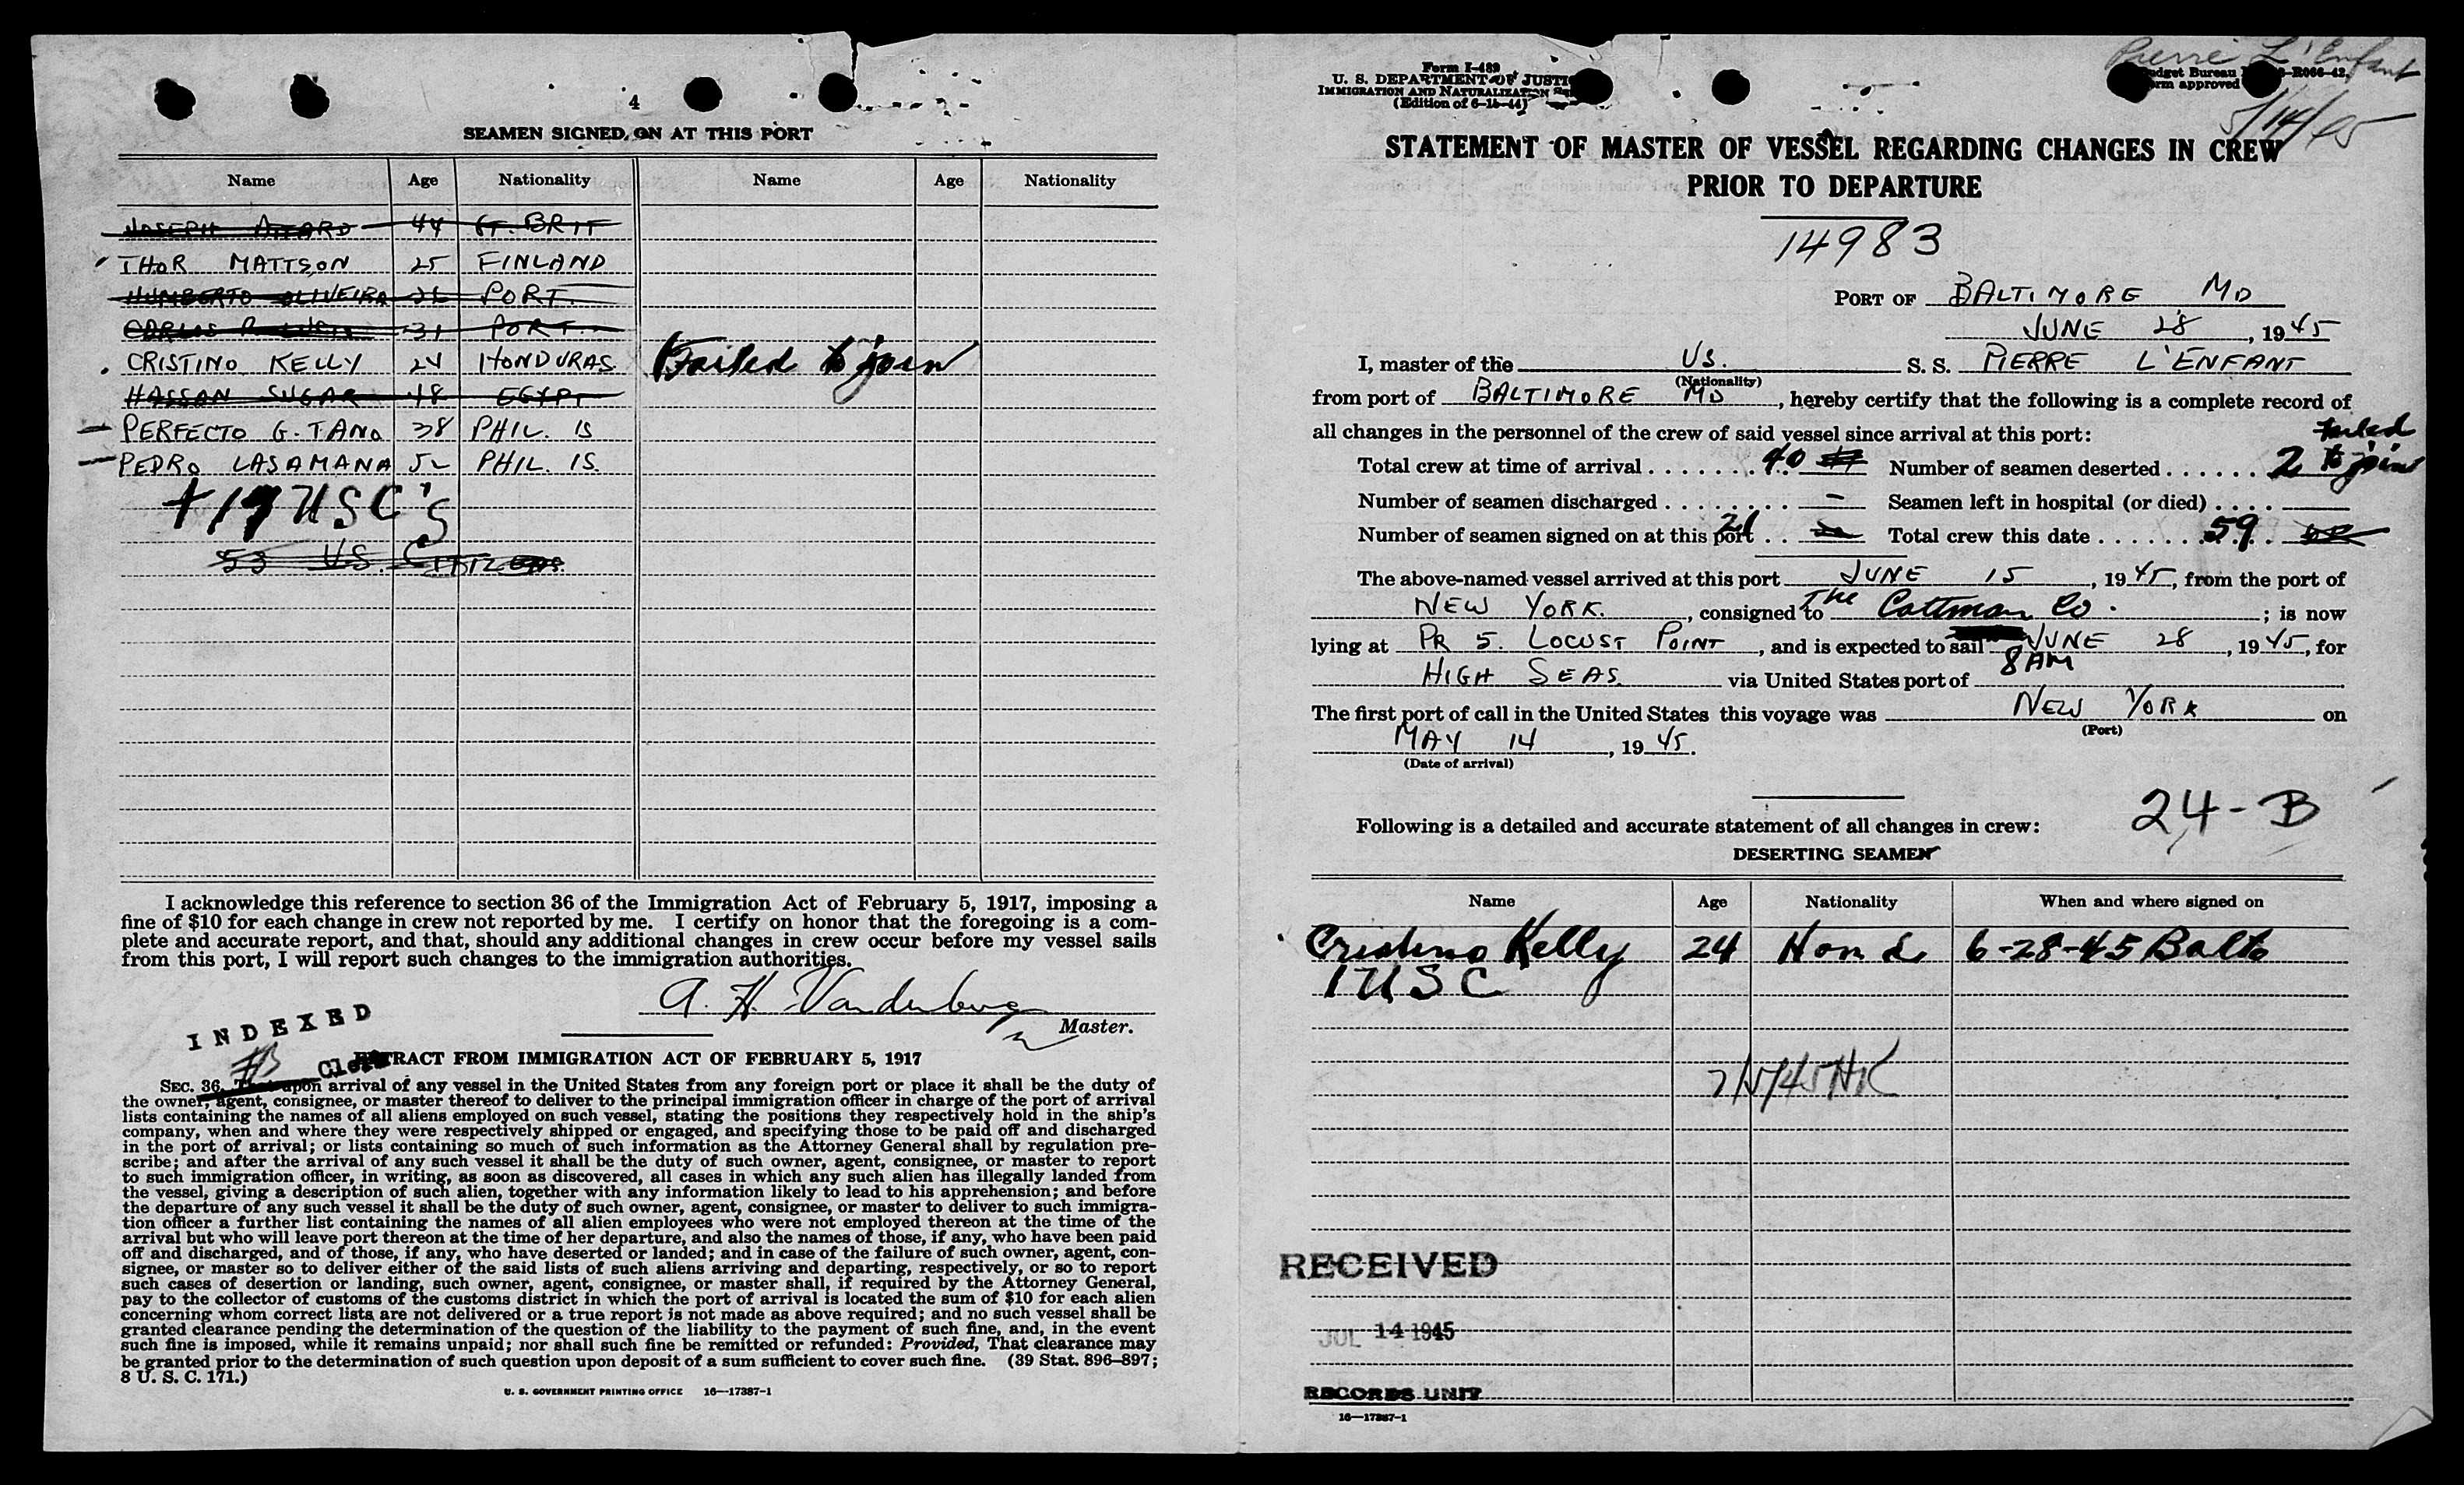 4
SEAMEN SIGNED ON AT THIS PORT
Name Age Nationality Name Age Nationality
JOSEPH ATTARD 44 GT. BRIT
THOR MATTSON 25 FINLAND
HUMBERTO OLIVEIRA PORT.
CARLOS 31 PORT.
CRISTINO KELLY 24 HONDURAS Failed to join
HASSAN SUGAR 48 EGYPT
PERFECTO G. TANO 38 PHIL. IS
PEDRO LASAMANA 52 PHIL. IS.
+ 17 USC's
53 U.S. CITIZENS.
I acknowledge this reference to section 36 of the Immigration Act of February 5, 1917, imposing a
fine of $10 for each change in crew not reported by me. I certify on honor that the foregoing is a com-
plete and accurate report, and that, should any additional changes in crew occur before my vessel sails
from this port, I will report such changes to the immigration authorities.
A. H. Vandenberg
Master.
INDEXED
Clerk
EXTRACT FROM IMMIGRATION ACT OF FEBRUARY 5, 1917
SEC. 36. That upon arrival of any vessel in the United States from any foreign port or place it shall be the duty of
the owner, agent, consignee, or master thereof to deliver to the principal immigration officer in charge of the port of arrival
lists containing the names of all aliens employed on such vessel, stating the positions they respectively hold in the ship's
company, when and where they were respectively shipped or engaged, and specifying those to be paid off and discharged
in the port of arrival; or lists containing so much of such information as the Attorney General shall by regulation pre-
scribe; and after the arrival of any such vessel it shall be the duty of such owner, agent, consignee, or master to report
to such immigration officer, in writing, as soon as discovered, all cases in which any such alien has illegally landed from
the vessel, giving a description of such alien, together with any information likely to lead to his apprehension; and before
the departure of any such vessel it shall be the duty of such owner, agent, consignee, or master to deliver to such immigra-
tion officer a further list containing the names of all alien employees who were not employed thereon at the time of the
arrival but who will leave port thereon at the time of her departure, and also the names of those, if any, who have been paid
off and discharged, and of those, if any, who have deserted or landed; and in case of the failure of such owner, agent, con-
signee, or master so to deliver either of the said lists of such aliens arriving and departing, respectively, or so to report
such cases of desertion or landing, such owner, agent, consignee, or master shall, if required by the Attorney General,
pay to the collector of customs of the customs district in which the port of arrival is located the sum of $10 for each alien
concerning whom correct lists are not delivered or a true report is not made as above required; and no such vessel shall be
granted clearance pending the determination of the question of the liability to the payment of such fine, and, in the event
such fine is imposed, while it remains unpaid; nor shall such fine be remitted or refunded: Provided, That clearance may
be granted prior to the determination of such question upon deposit of a sum sufficient to cover such fine. (39 Stat. 896–897;
8 U. S. C. 171.)
U. S. GOVERNMENT PRINTING OFFICE 16—17387-1
Pierre L'Enfant
5/14/45
Form I-489
U. S. DEPARTMENT OF JUSTI
IMMIGRATION AND NATURALIZATION
(Edition of 6-15-44)
udget Bureau -R066-42.
rm approved
STATEMENT OF MASTER OF VESSEL REGARDING CHANGES IN CREW
PRIOR TO DEPARTURE
14983
PORT OF BALTIMORE MD
JUNE 28, 1945
I, master of the US. S. S. PIERRE L'ENFANT
(Nationality)
from port of BALTIMORE MD, hereby certify that the following is a complete record of
all changes in the personnel of the crew of said vessel since arrival at this port:
Total crew at time of arrival ....... 40 Number of seamen deserted ...... 2 failed to join
Number of seamen discharged ........ – Seamen left in hospital (or died) ....
Number of seamen signed on at this port .. 21 Total crew this date ....... 59
The above-named vessel arrived at this port JUNE 15, 1945, from the port of
NEW YORK., consigned to The Cottman Co.; is now
lying at PR 5. LOCUST POINT, and is expected to sail JUNE 28, 1945, for
8 AM
HIGH SEAS. via United States port of
The first port of call in the United States this voyage was NEW YORK on
(Port)
MAY 14, 1945.
(Date of arrival)
24-B
Following is a detailed and accurate statement of all changes in crew:
DESERTING SEAMEN
Name Age Nationality When and where signed on
Cristino Kelly 24 Hond. 6-28-45 Balto
1 USC
RECEIVED
JUL 14 1945
RECORDS UNIT
16—17387-1